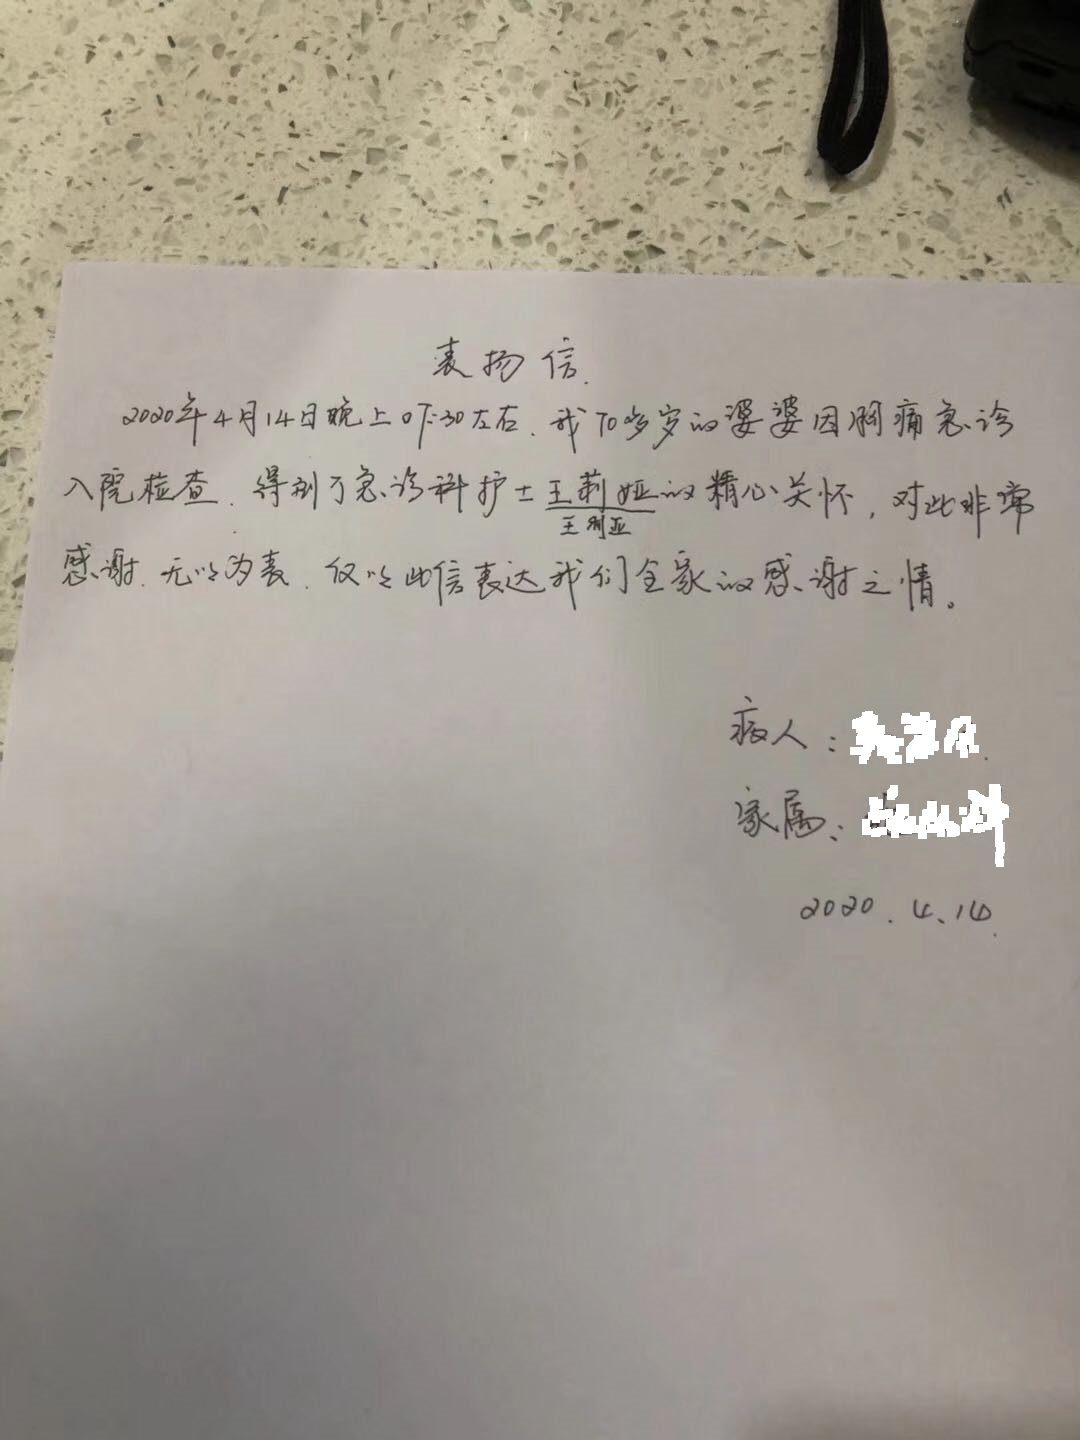 表扬信.
2020年4月14日晚上0时:30左右.我70多岁的婆婆因胸痛急诊
入院检查.得到了急诊科护士王莉娅的精心关怀,对此非常
王利亚
感谢.无以为表.仅以此信表达我们全家的感谢之情。
病人:
家属:
2020.4.14.